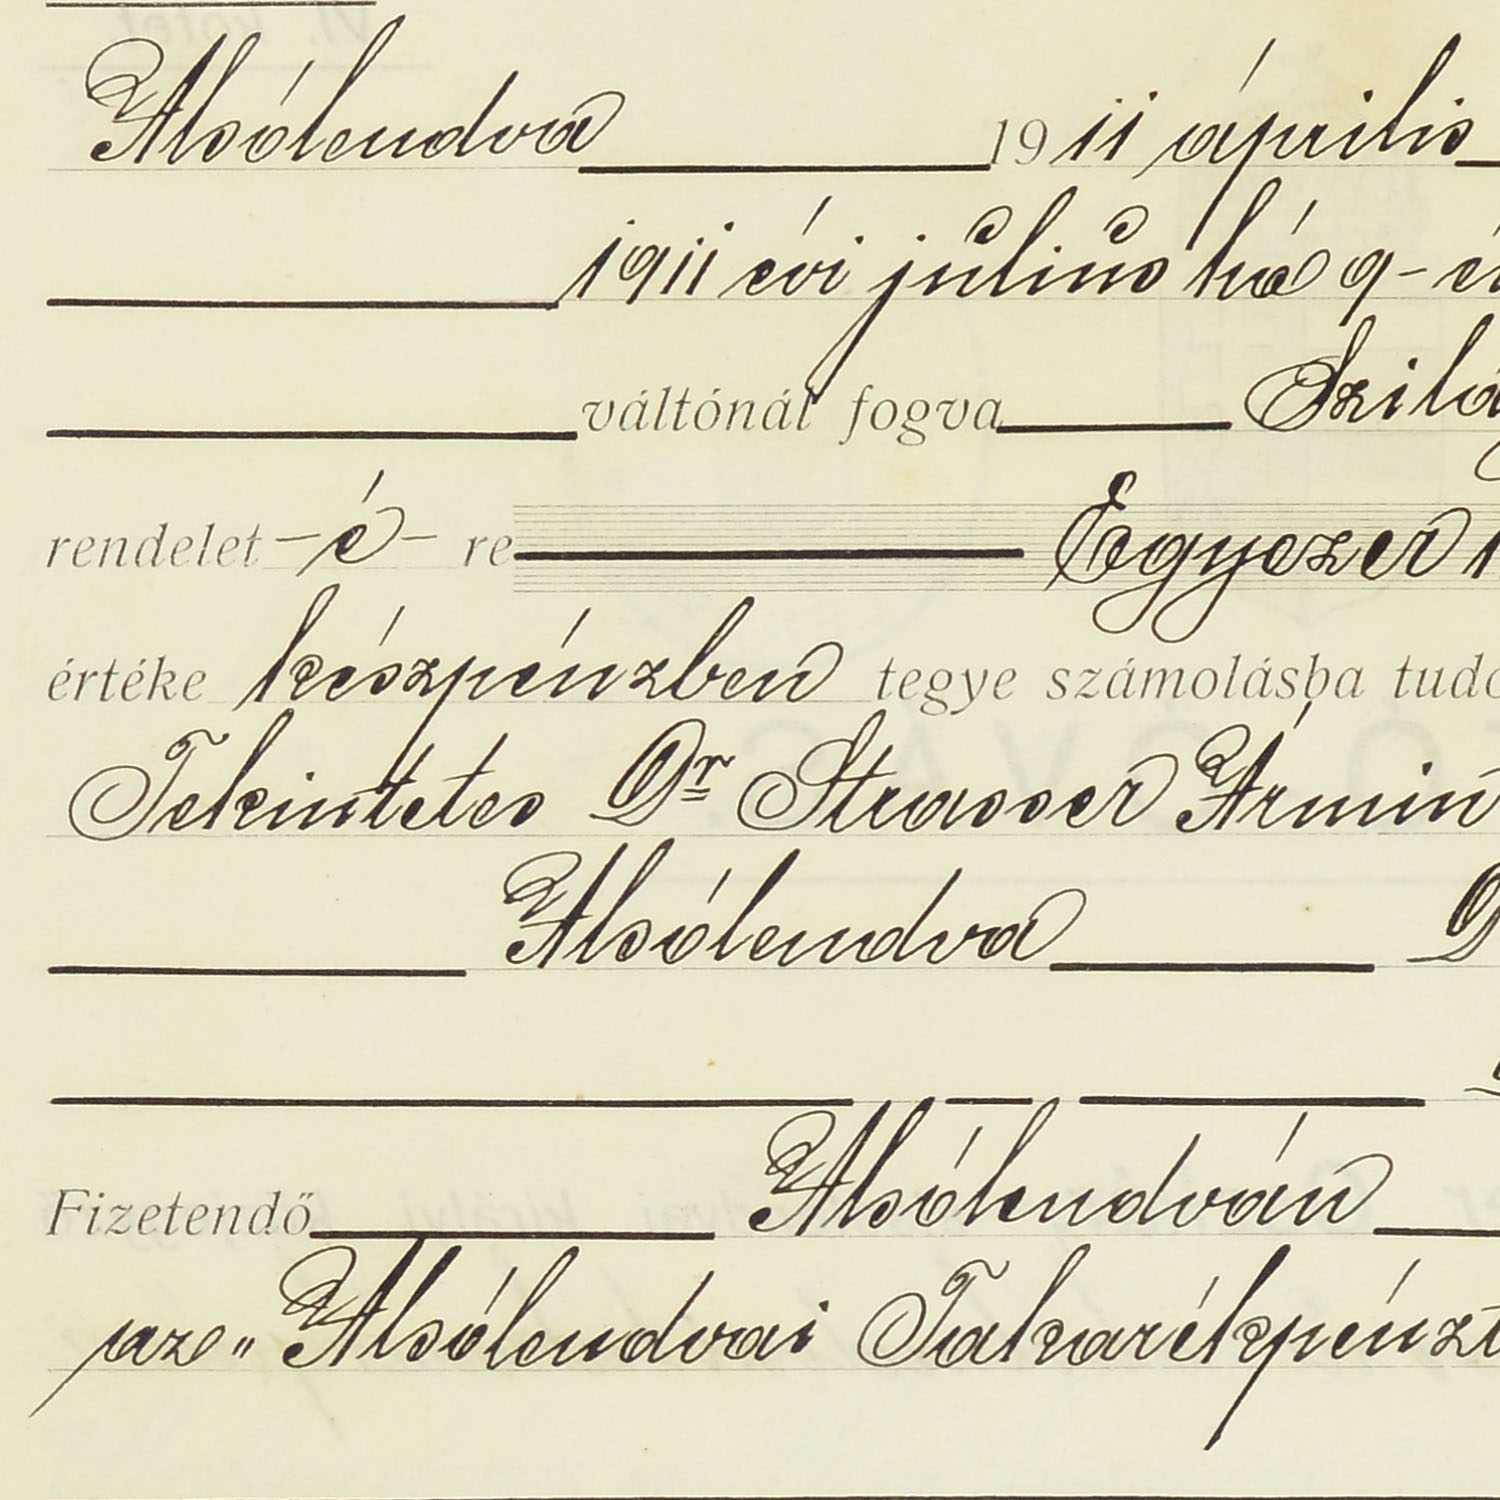 Alsólendva 1911 április
1911 évi július hó 9-
váltónál fogva
rendelet -é- re Egyezer
értéke készpénzben tegye számolásba
Tekintetes Dr Strasser Ármin
Alsólendva
Fizetendő Alsólendván
az „Alsólendvai